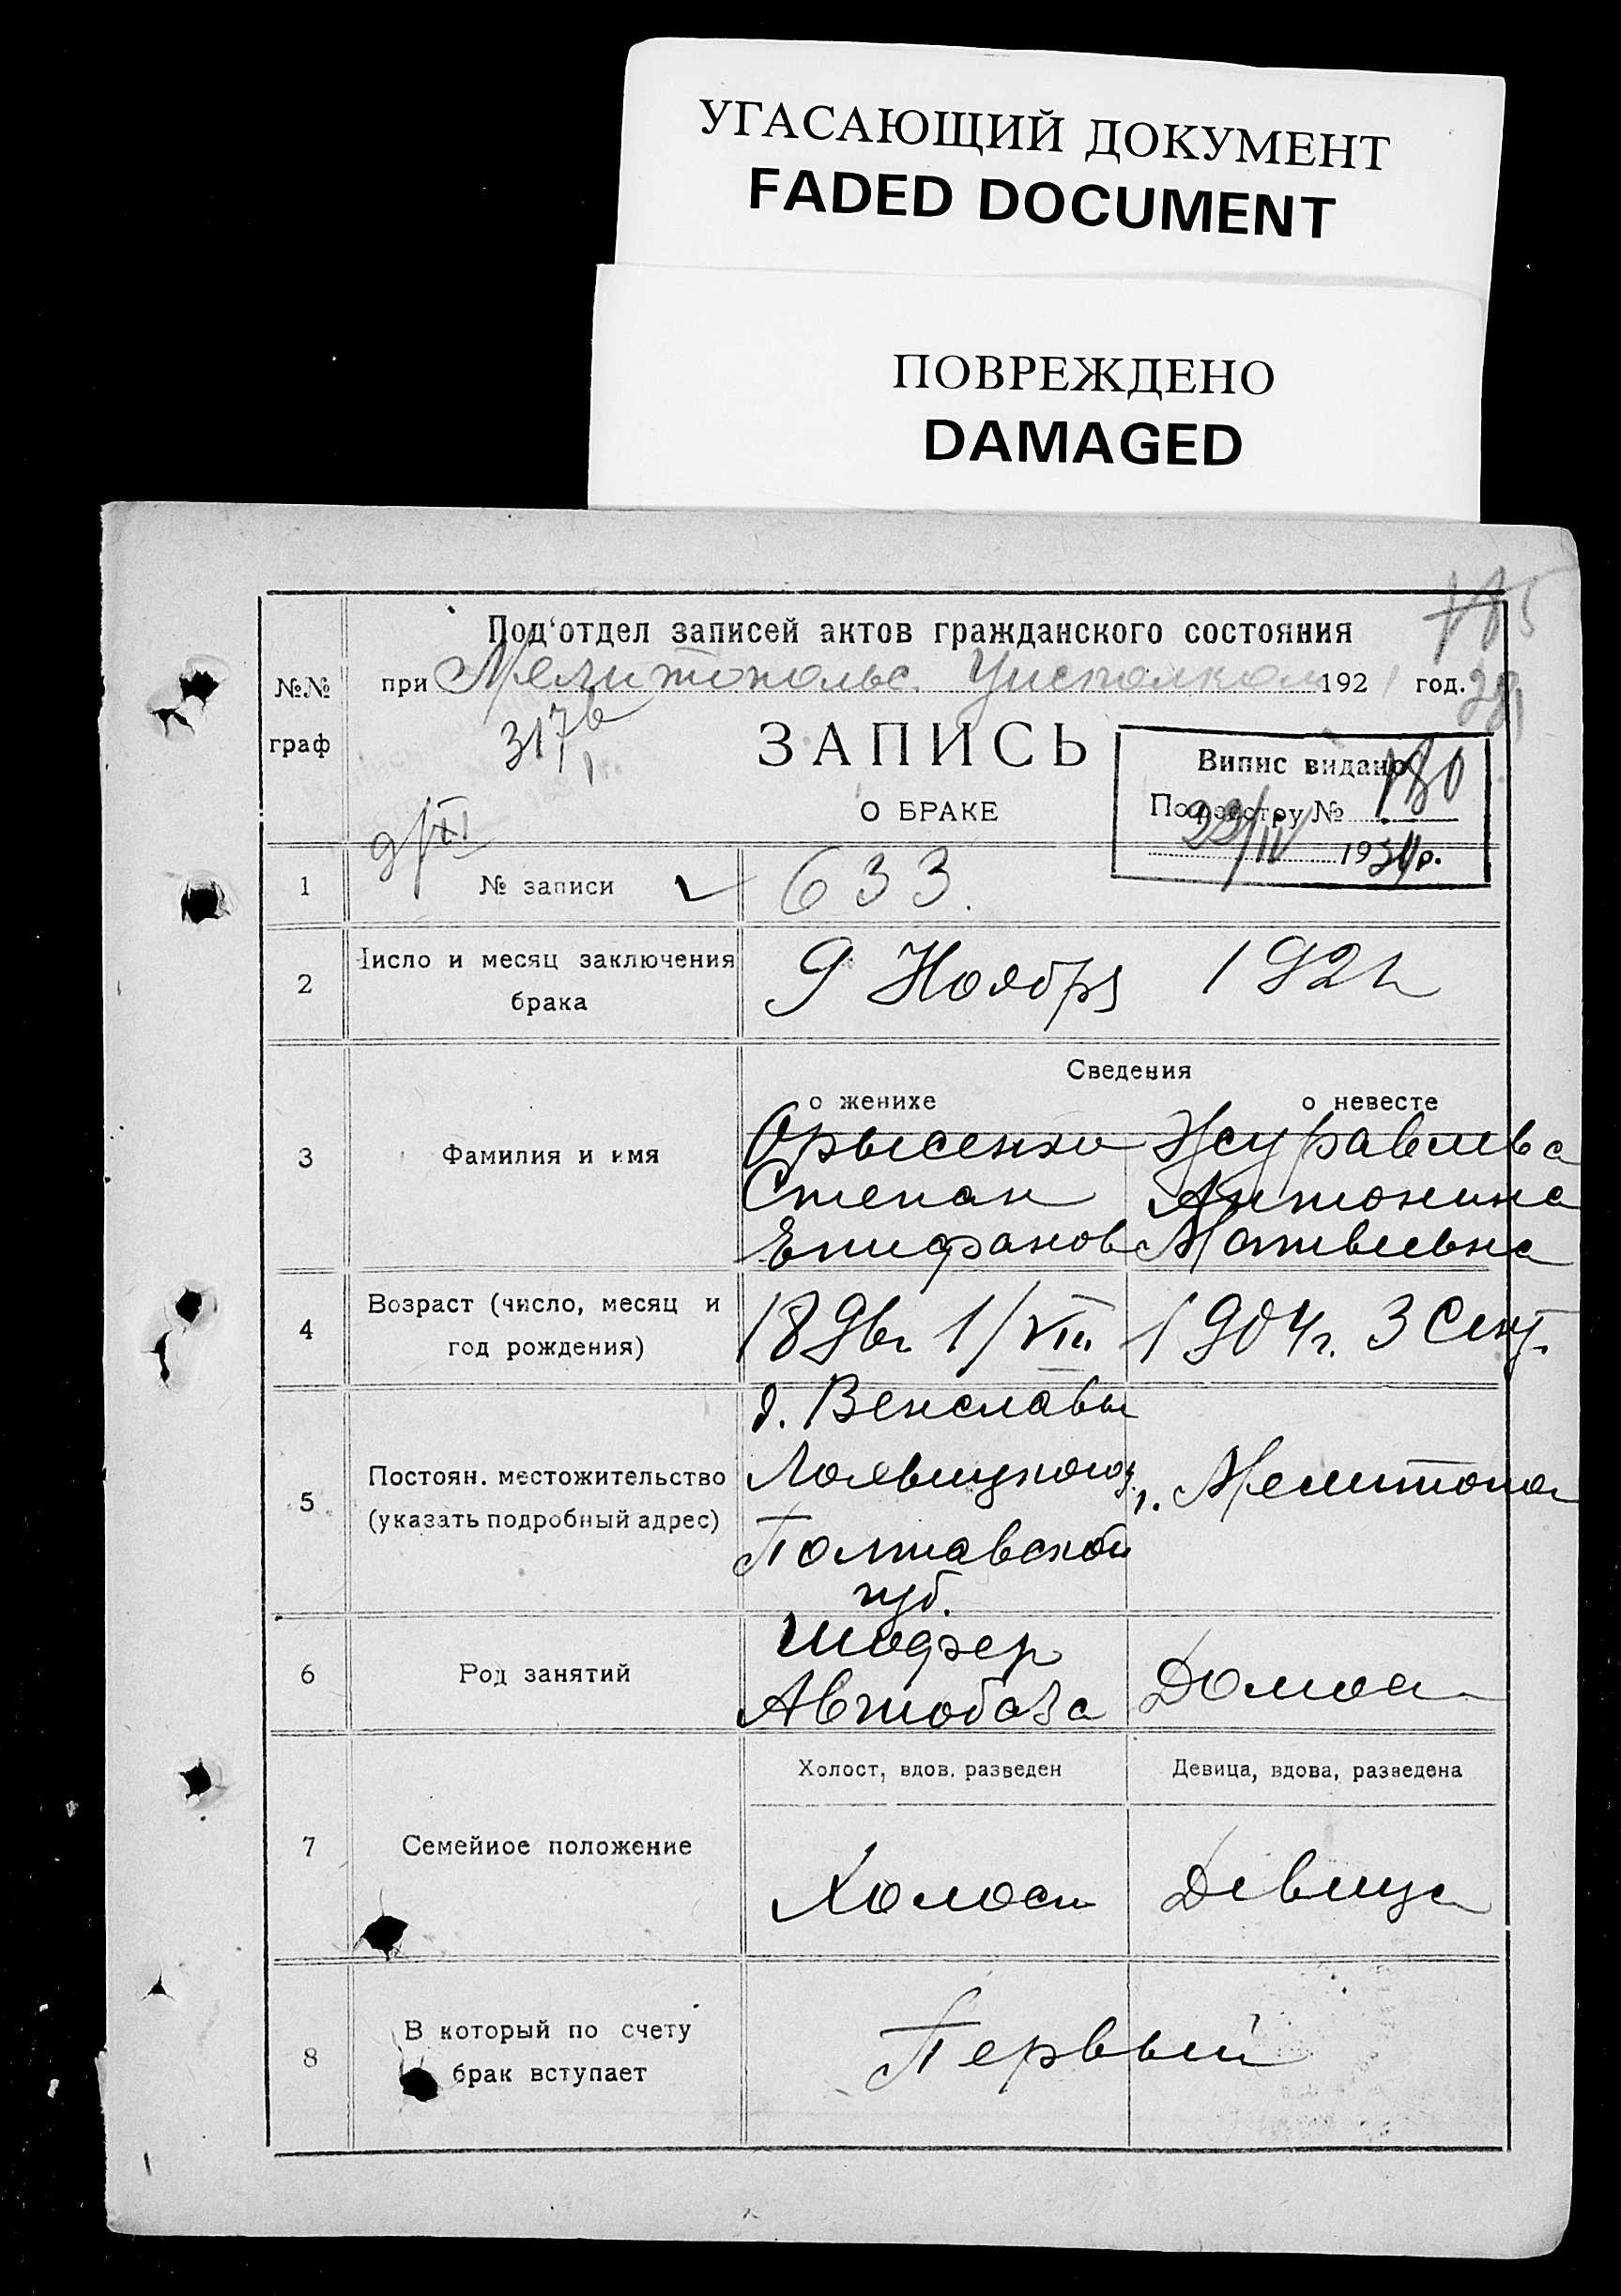 УГАСАЮЩИЙ ДОКУМЕНТ
FADED DOCUMENT
ПОВРЕЖДЕНО
DAMAGED
Под'отдел записей актов гражданского состояния
№№ граф
при Мелитопольс. Уисполком 1921 год.
317
ЗАПИСЬ
О БРАКЕ
Випис видано
По реестру № 180
22/IV 1934 р.
9/XI
1 № записи 633.
2 Число и месяц заключения брака
9 Ноября 1921
Сведения
о женихе о невесте
3 Фамилия и имя
Орысенко Журавлева
Степан Антонина
Епифанов Матвеевна
4 Возраст (число, месяц и год рождения)
189 1/VIII 1904г. 3 Сент.
5 Постоян. местожительство (указать подробный адрес)
д. Венславы
г. Мелитопол
Полтавской
губ.
6 Род занятий
Шофер
Автобаза
7 Семейное положение
Холост, вдов, разведен Девица, вдова, разведена
Холост Девица
8 В который по счету брак вступает
Первый